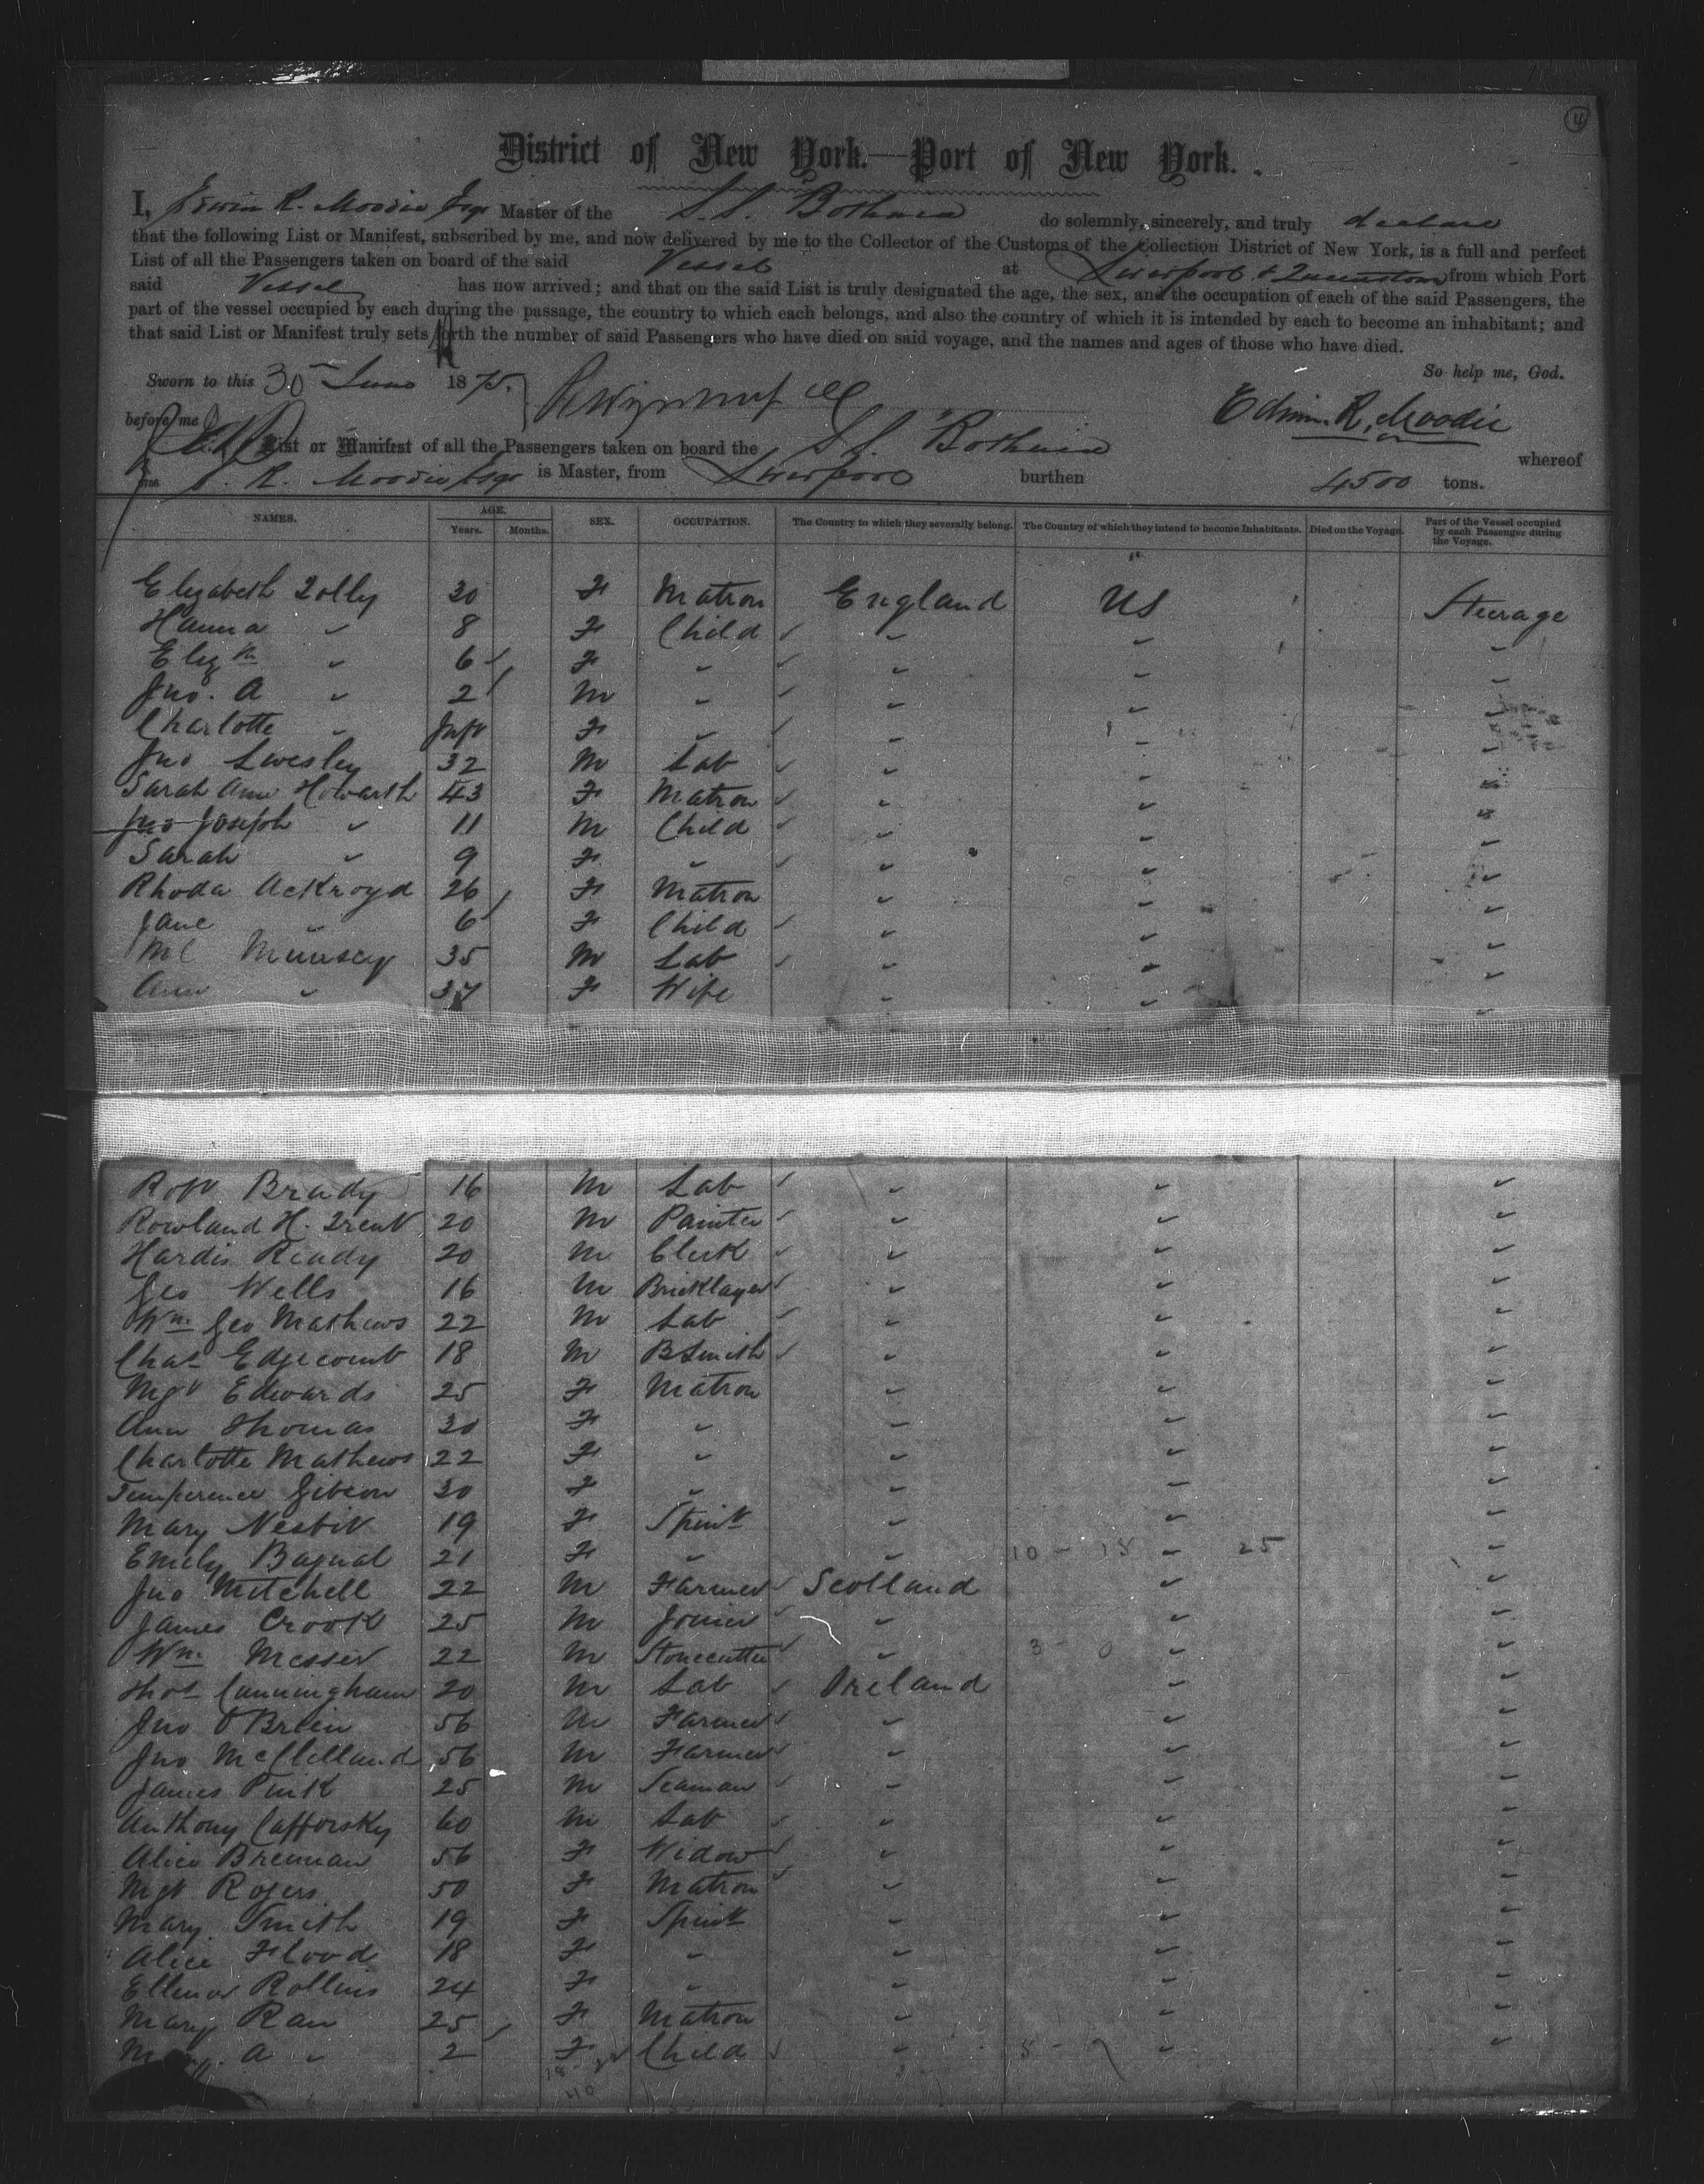 4
District of New York.—Port of New York.
I, Edwin R. Moodie Esqr Master of the S.S. Bothnia do solemnly, sincerely, and truly declare
that the following List or Manifest, subscribed by me, and now delivered by me to the Collector of the Customs of the Collection District of New York, is a full and perfect
List of all the Passengers taken on board of the said Vessel at Liverpool & Queenstown from which Port
said Vessel has now arrived; and that on the said List is truly designated the age, the sex, and the occupation of each of the said Passengers, the
part of the vessel occupied by each during the passage, the country to which each belongs, and also the country of which it is intended by each to become an inhabitant; and
that said List or Manifest truly sets forth the number of said Passengers who have died on said voyage, and the names and ages of those who have died.
So help me, God.
Sworn to this 30 June 1875.
before me
Edwin. R. Moodie
List or Manifest of all the Passengers taken on board the S.S. Bothnia whereof
R. Moodie Esqr is Master, from Liverpool burthen 4500 tons.
NAMES. AGE. Years. Months. SEX. OCCUPATION. The Country to which they severally belong. The Country of which they intend to become Inhabitants. Died on the Voyage. Part of the Vessel occupied by each Passenger during the Voyage.
Elizabeth Jolly 30 F Matron England US Steerage
Hanna " 8 F Child " " "
Elizth " 6 F " " " "
Jno. A " 2 M " " " "
Charlotte " Inft F " " " "
Jno Swesley 32 M Lab " " "
Sarah Ann Howarth 43 F Matron " " "
Jno Joseph " 11 M Child " " "
Sarah " 9 F " " " "
Rhoda Ackroyd 26 F Matron " " "
Jane " 6 F Child " " "
Ml Munsey 35 M Lab " " "
Ann " 34 F Wife " " "
Robt Brady 16 M Lab " " "
Rowland H. Trent 20 M Painter " " "
Hardis Ready 20 M Clerk " " "
Geo Wells 16 M Bricklayer " " "
Wm. Geo Mathews 22 M Lab " " "
Chas Edgecomb 18 M BSmith " " "
Mgt Edwards 25 F Matron " " "
Ann Thomas 30 F " " " "
Charlotte Mathews 22 F " " " "
Temperence Gibson 30 F " " " "
Mary Nesbit 19 F Spinr " " "
Emily Bagnal 21 F " " 10 - 15 " 25 "
Jno Mitchell 22 M Farmer Scotland " "
James Crook 25 M Joiner " " "
Wm. Messer 22 M Stonecutter " 3 - 0 " "
Thos Cunningham 20 M Lab Ireland " "
Jno OBrien 56 M Farmer " " "
Jno McClelland 56 M Farmer " " "
James Pink 25 M Seaman " " "
Anthony Cafforsky 60 M Lab " " "
Alice Brennan 56 F Widow " " "
Mgt Rogers 50 F Matron " " "
Mary Smith 19 F Spinr " " "
Alice Flood 18 F " " " "
Ellenor Rollins 24 F " " " "
Mary Ran 25 F Matron " " "
Mary. A " 2 F Child " " "
40